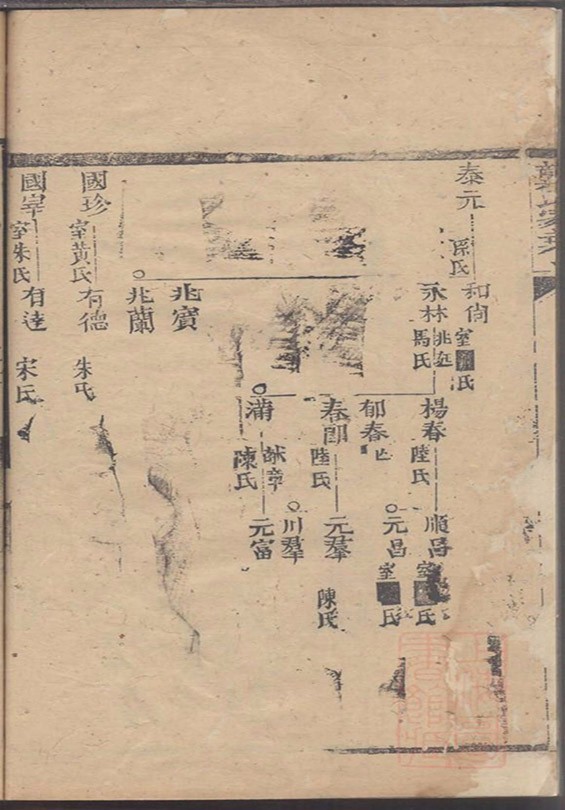 泰元
孫氏
和尚
室 氏
永林
兆廷
馬氏
楊春
陸氏
順昌
室 氏
郁春
元昌
室 氏
春郎
陸氏
元羣
陳氏
川羣
滿
猷章
陳氏
元富
兆賓
兆蘭
國珍
室黃氏
有德
朱氏
國宰
室朱氏
有達
宋氏